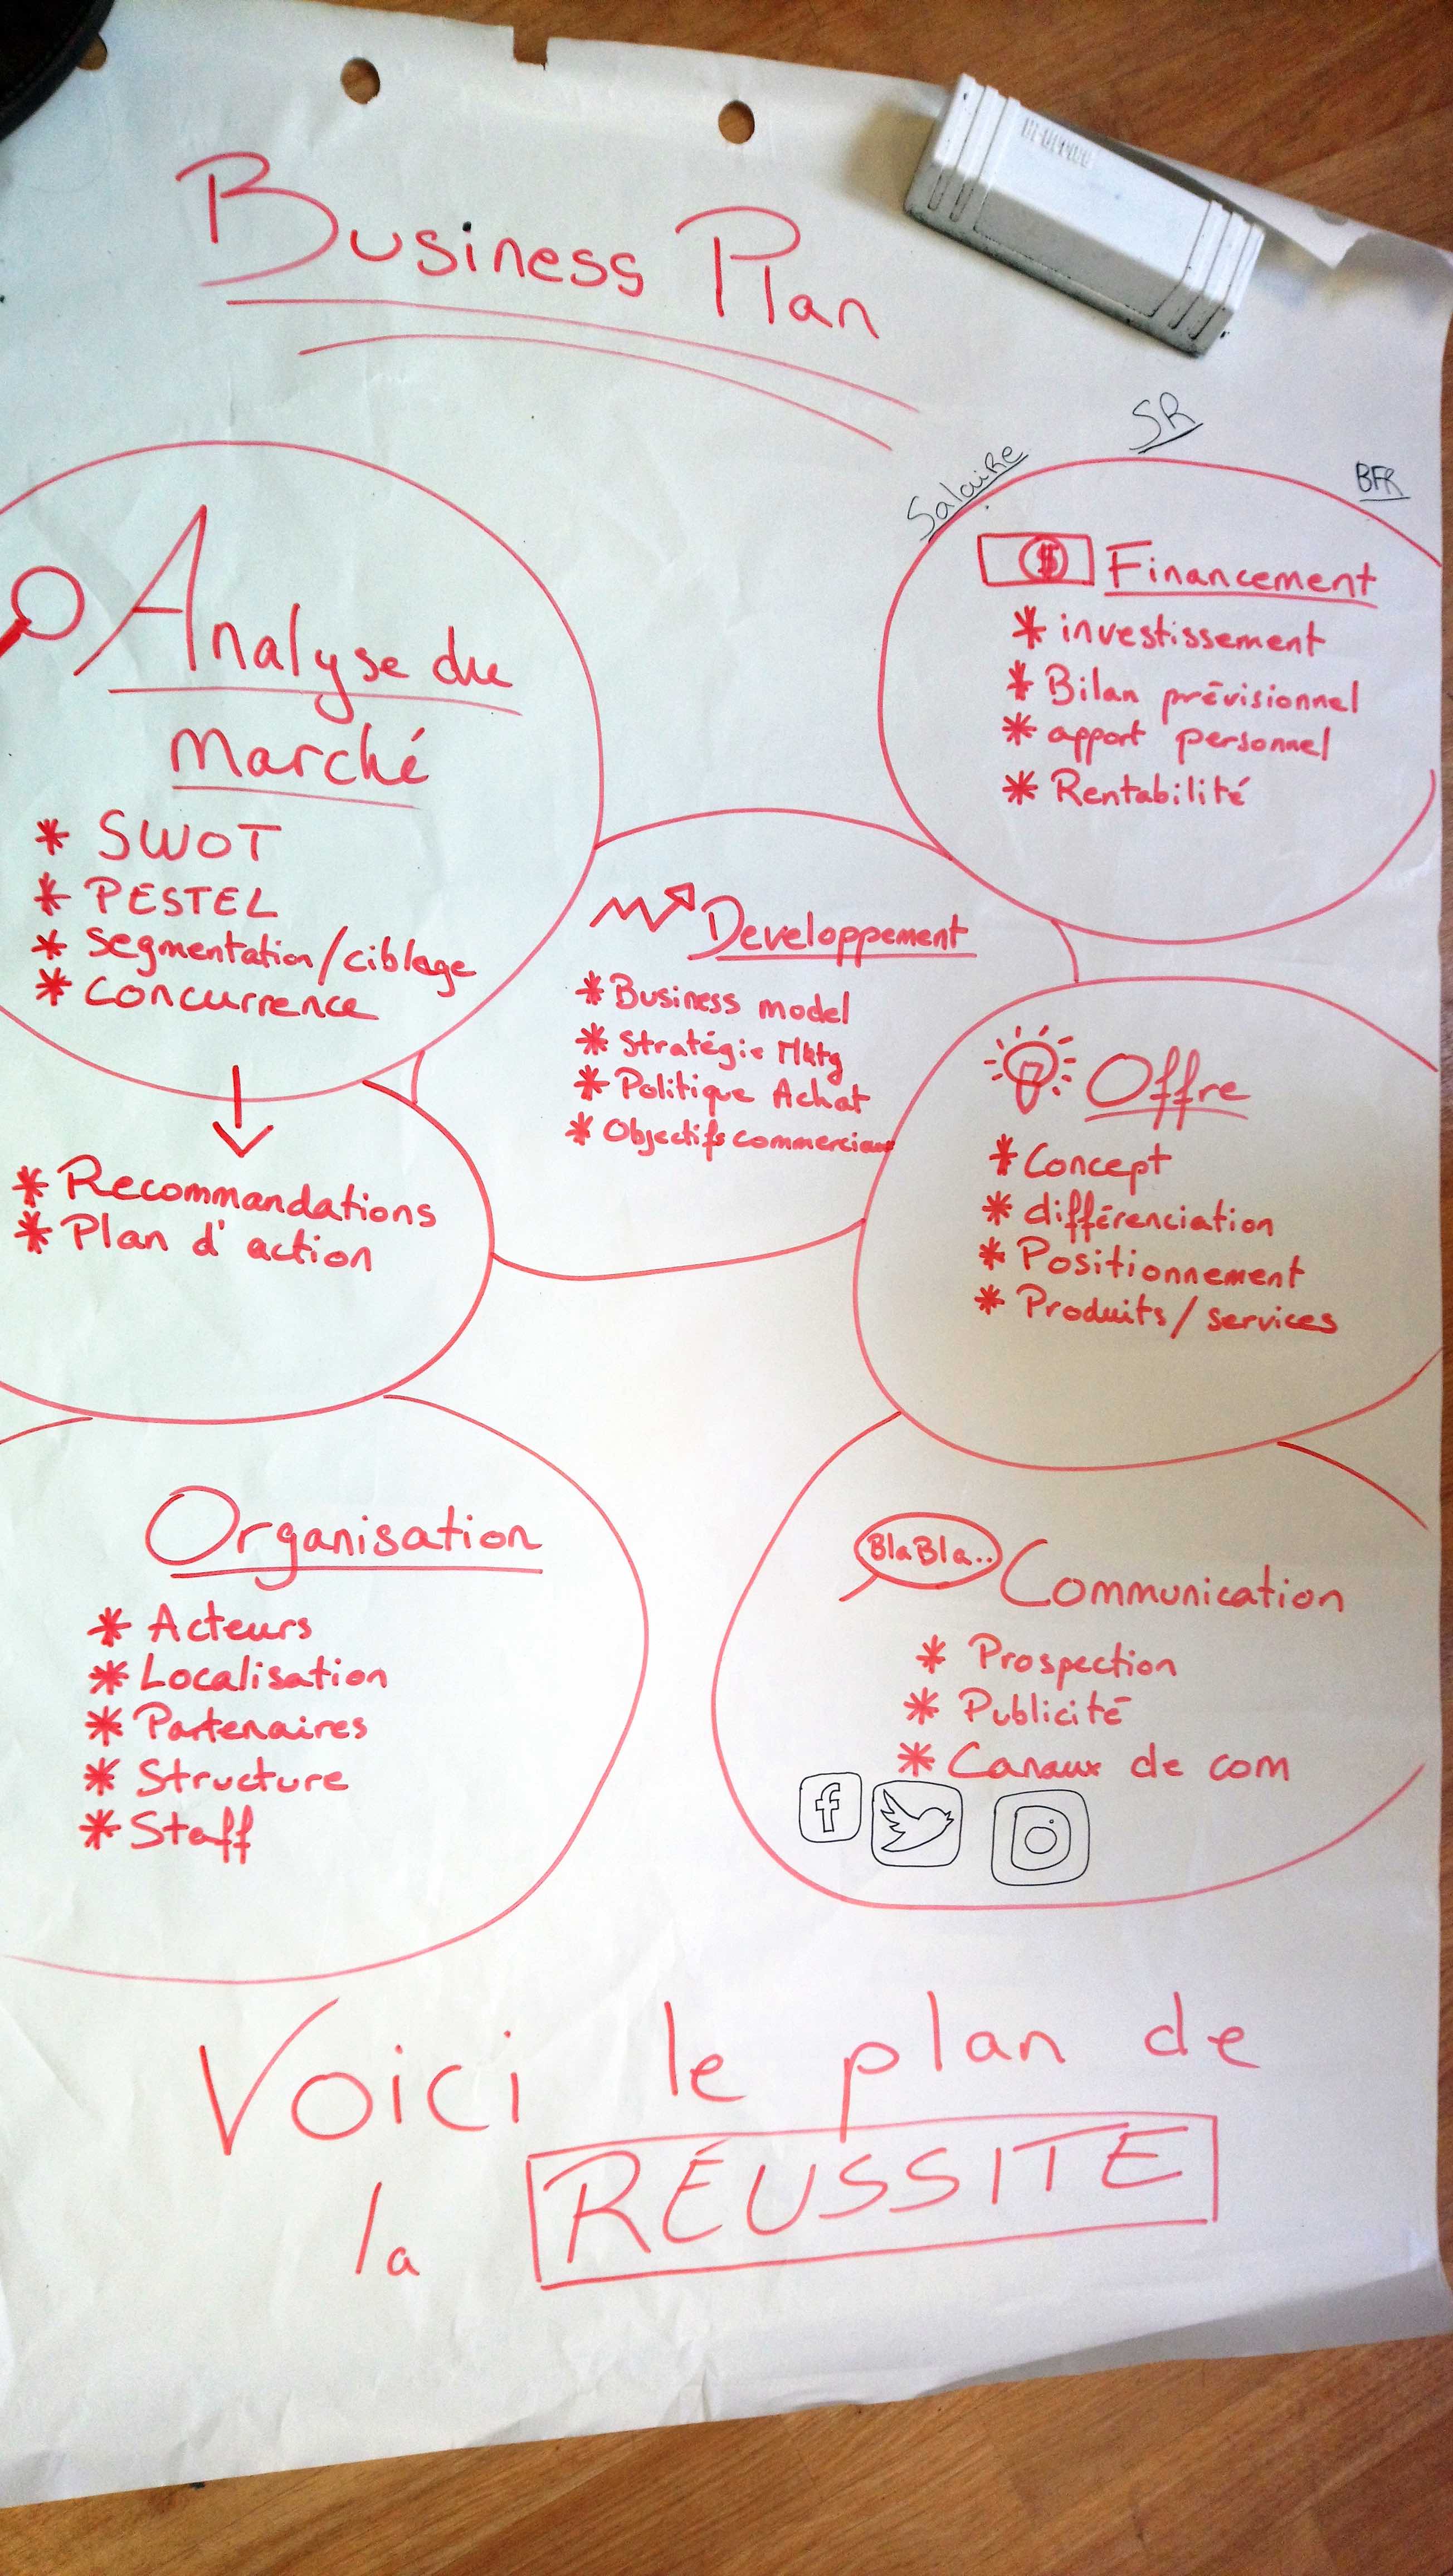 Business Plan
Analyse du
Marché
* SWOT
* PESTEL
* Segmentation/ciblage
* Concurrence
* Recommandations
* Plan d'action
Salaire
SR
BFR
$ Financement
* investissement
* Bilan prévisionnel
* apport personnel
* Rentabilité
Developpement
* Business model
* Stratégie Mktg
* Politique Achat
* Objectifs commerciaux
Offre
* Concept
* différenciation
* Positionnement
* Produits/services
Organisation
* Acteurs
* Localisation
* Partenaires
* Structure
* Staff
BlaBla.. Communication
* Prospection
* Publicité
* Canaux de com
f
Voici le plan de
la RÉUSSITE